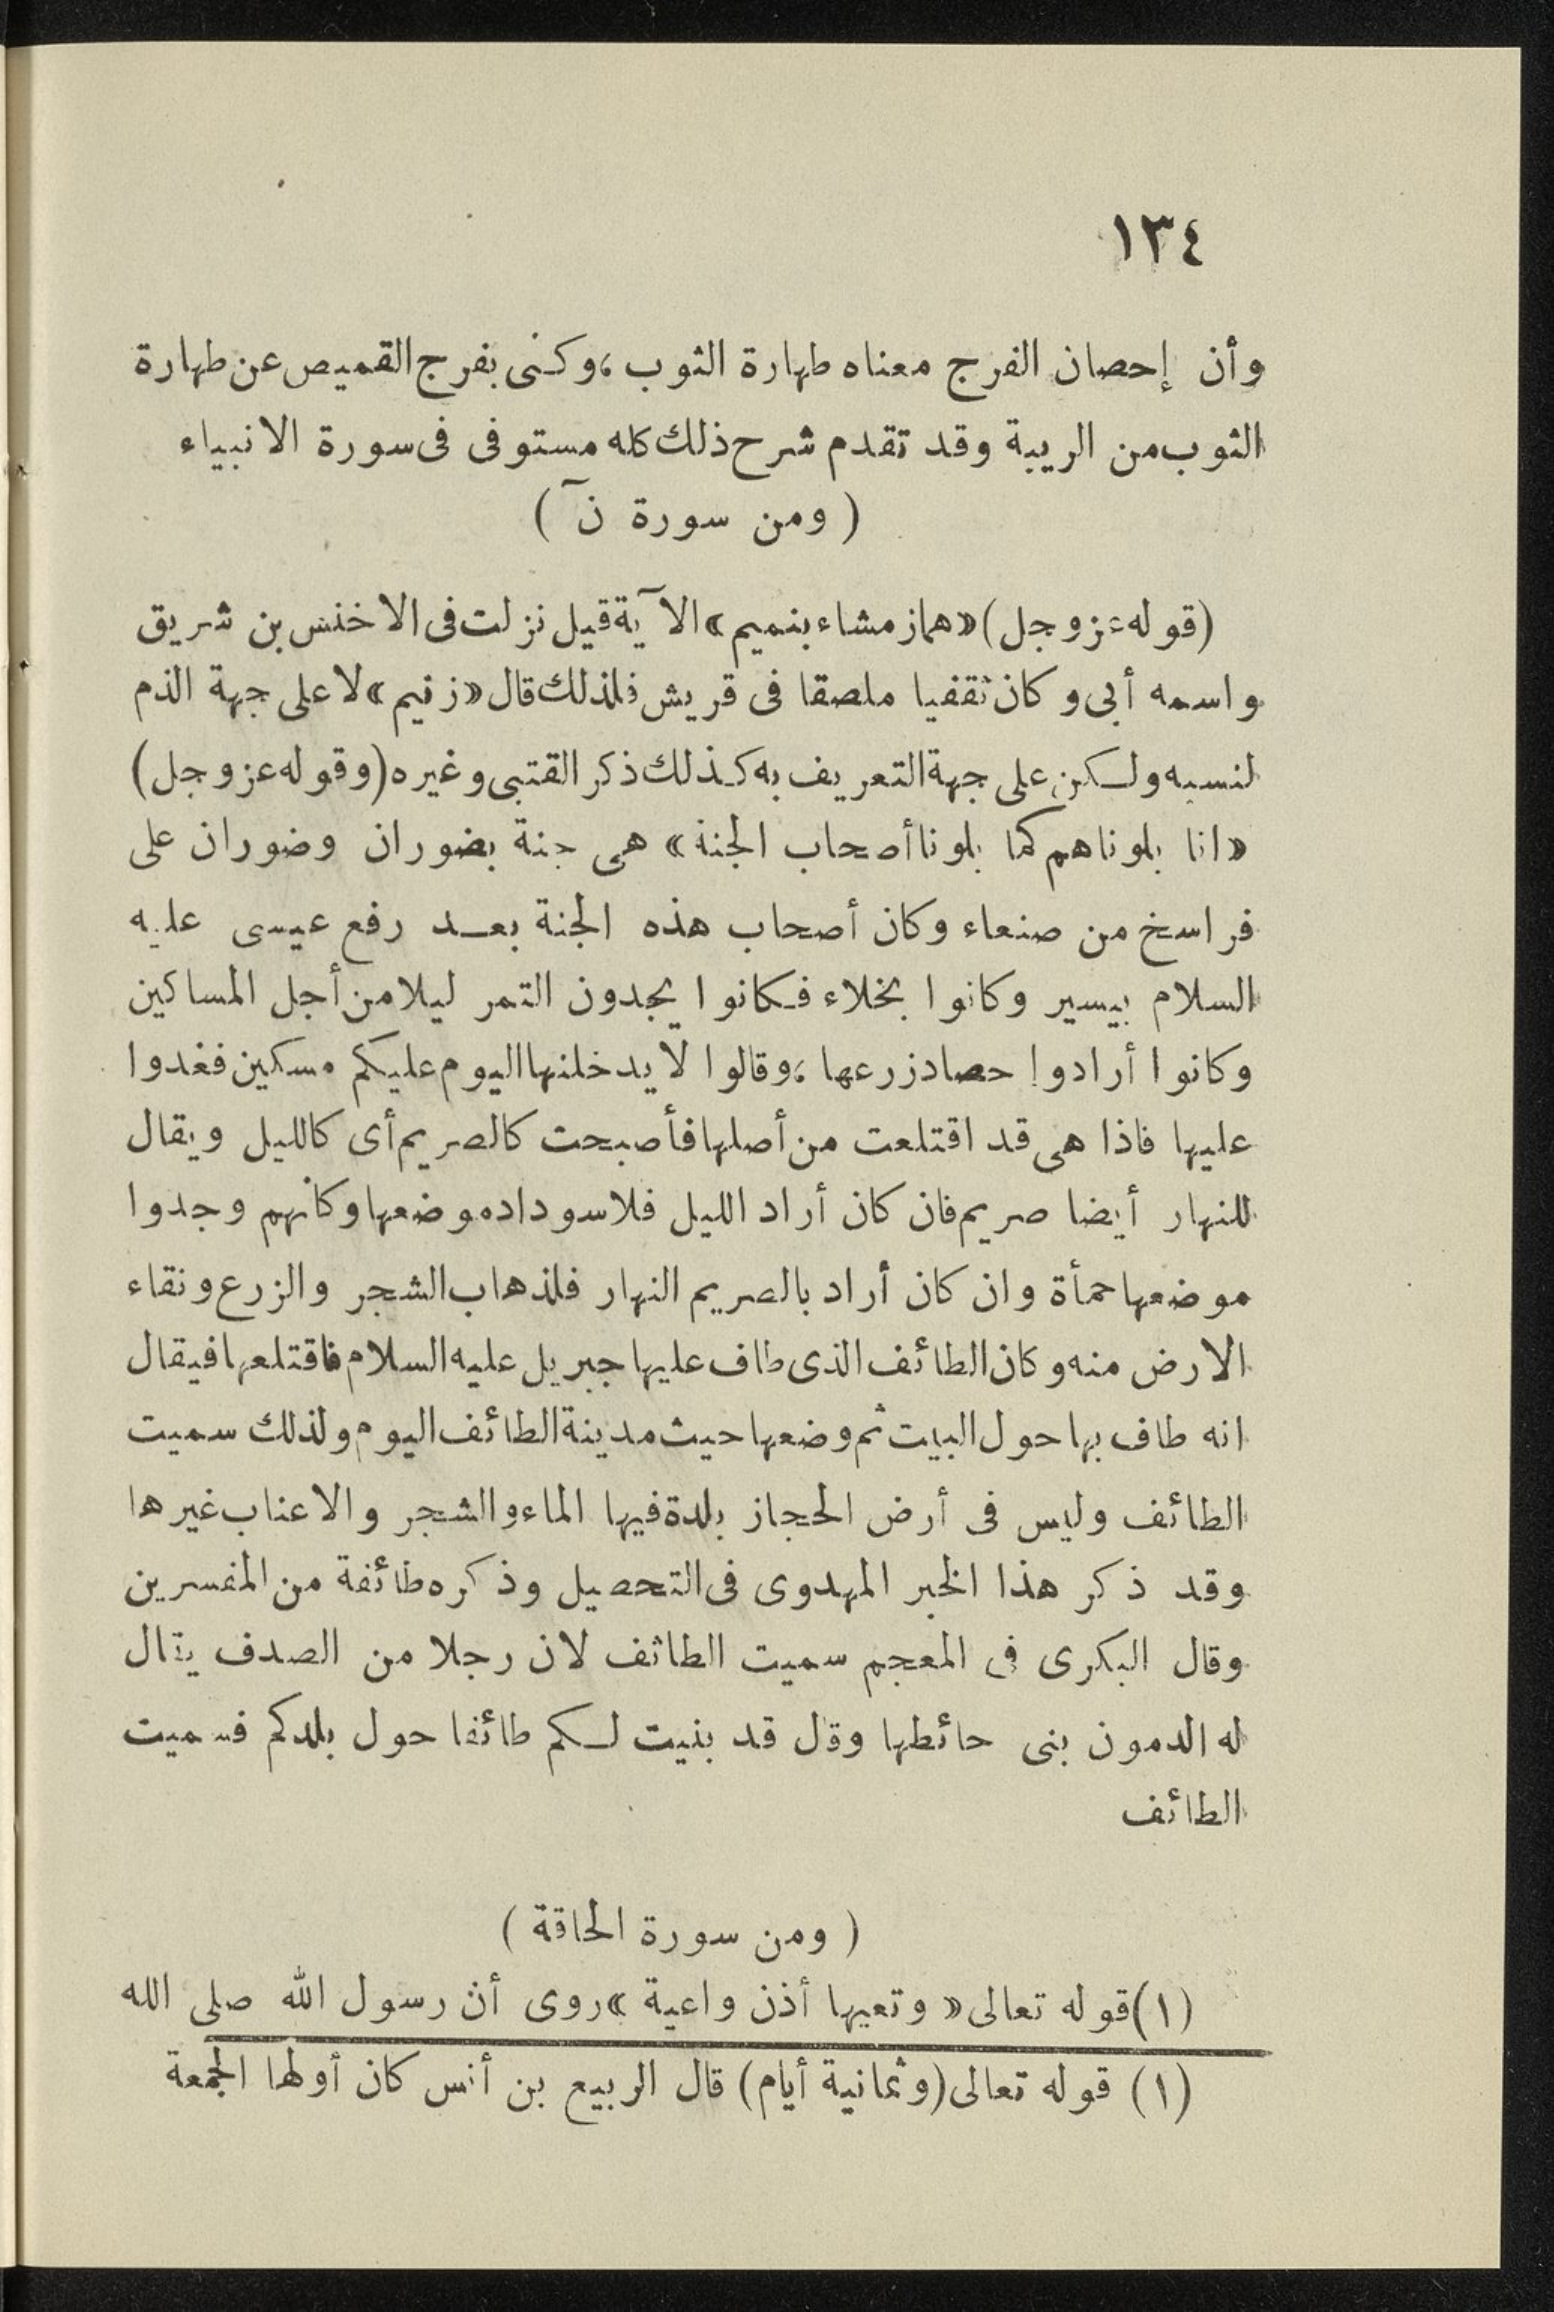 ١٣٤
وأن إحصان الفرج معناه طهارة الثوب ،وكنى بفرج القميص عن طهارة
الثوب من الريبة وقد تقدم شرح ذلك كله مستوفى فى سورة الانبياء
( ومن سورة نٓ )
(قوله عز وجل) «هماز مشاء بنميم» الآية قيل نزلت فى الاخنس بن شريق
واسمه أبى وكان ثقفيا ملصقا فى قريش فلذلك قال «زنيم» لا على جهة الذم
لنسبه ولكن على جهة التعريف به كذلك ذكر القتبى وغيره (وقوله عز وجل)
«انا بلوناهم كما بلونا أصحاب الجنة» هى جنة بضوران وضوران على
فراسخ من صنعاء وكان أصحاب هذه الجنة بعد رفع عيسى عليه
السلام بيسير وكانوا بخلاء فكانوا يجدون التمر ليلا من أجل المساكين
وكانوا أرادوا حصاد زرعها ،وقالوا لا يدخلنها اليوم عليكم مسكين فغدوا
عليها فاذا هى قد اقتلعت من أصلها فأصبحت كالصريم أى كالليل ويقال
للنهار أيضا صريم فان كان أراد الليل فلاسوداد موضعها وكأنهم وجدوا
موضعها حمأة وان كان أراد بالصريم النهار فلذهاب الشجر والزرع ونقاء
الارض منه وكان الطائف الذى طاف عليها جبريل عليه السلام فاقتلعها فيقال
انه طاف بها حول البيت ثم وضعها حيث مدينة الطائف اليوم ولذلك سميت
الطائف وليس فى أرض الحجاز بلدة فيها الماء والشجر والاعناب غيرها
وقد ذكر هذا الخبر المهدوى فى التحصيل وذكره طائفة من المفسرين
وقال البكرى فى المعجم سميت الطائف لان رجلا من الصدف يقال
له الدمون بنى حائطها وقال قد بنيت لكم طائفا حول بلدكم فسميت
الطائف
( ومن سورة الحاقة )
(١) قوله تعالى « وتعيها أذن واعية » روى أن رسول الله صلى الله
(١) قوله تعالى (وثمانية أيام) قال الربيع بن أنس كان أولها الجمعة